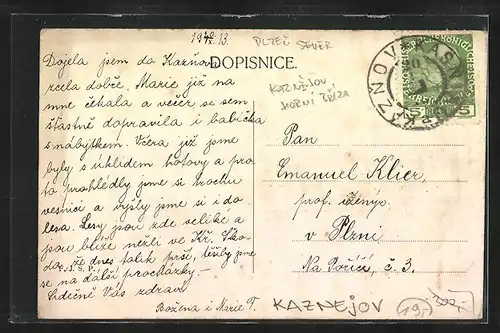 13
PLZEŇ SEVER
DOPISNICE.
KAZNĚJOV,
HORNÍ BŘÍZA
Dojela jsem do Kaznova
zcela dobře. Marie již na
mne čekala a večer se sem
šťastně dopravila i babička
s nábytkem. Včera již jsme
byly s úklidem hotovy a pro
to prohlédly jsme si trochu
vesnici a vyšly jsme si i do
lesa. Lesy jsou zde veliké a
jsou blíže nežli ve Kř. Ško
da, že dnes tolik prší, těšily jsme
se na další procházky. —
Srdečně Vás zdraví
Božena i Marie T.
J. S. P.
KAZNOV
5
Pan
Emanuel Klier,
prof. 
v Plzni
Na Poříčí, č. 3.
KAZNĚJOV
19,-
300,-